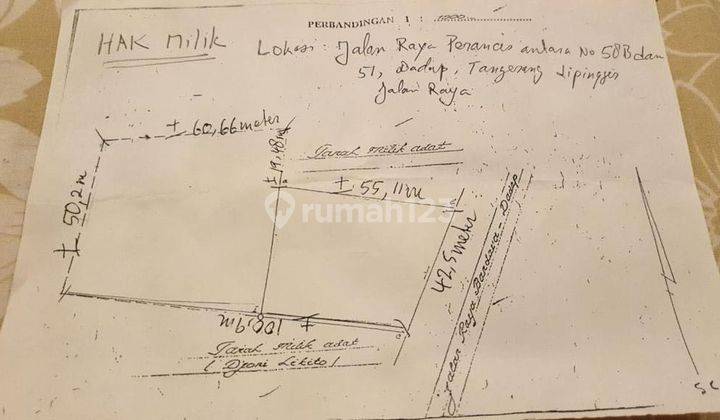 PERBANDINGAN 1 : 1000
HAK MILIK
Lokasi : Jalan Raya Perancis antara No 58B dan
51, Dadap, Tangerang dipinggir
Jalan Raya
± 60,66 meter
± 19,48 m
Tanah milik adat
± 55,11 m
± 50,2 m
rumah123
42,5 meter
Jalan Raya Bandara - Dadap
± 100,9 m
Tanah milik adat
( Djoni Likito )